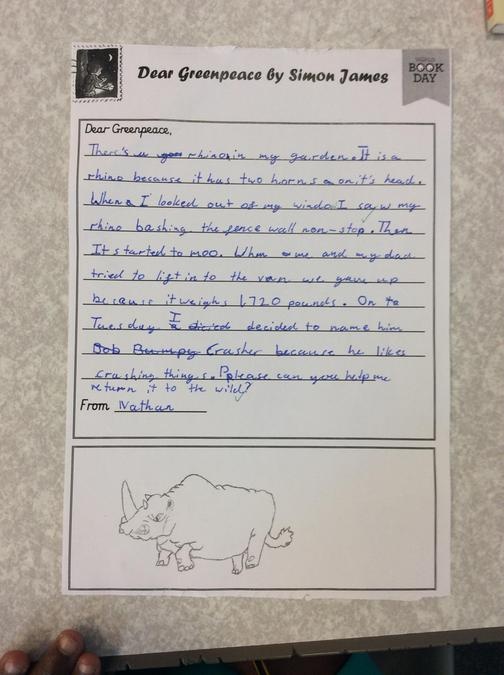 Dear Greenpeace by Simon James
WORLD
BOOK
DAY
Dear Greenpeace,
There's a rhino in my garden. It is a
rhino because it has two horns on it's head.
When I looked out of my window I saw my
rhino bashing the fence wall non-stop. Then
It started to moo. When me and my dad
tried to lift in to the van we gave up
because it weighs 1,720 pounds. On
Tuesday I decided to name him
Bob Bumpy Crasher because he likes
crashing things. Please can you help me
return it to the wild?
From Nathan